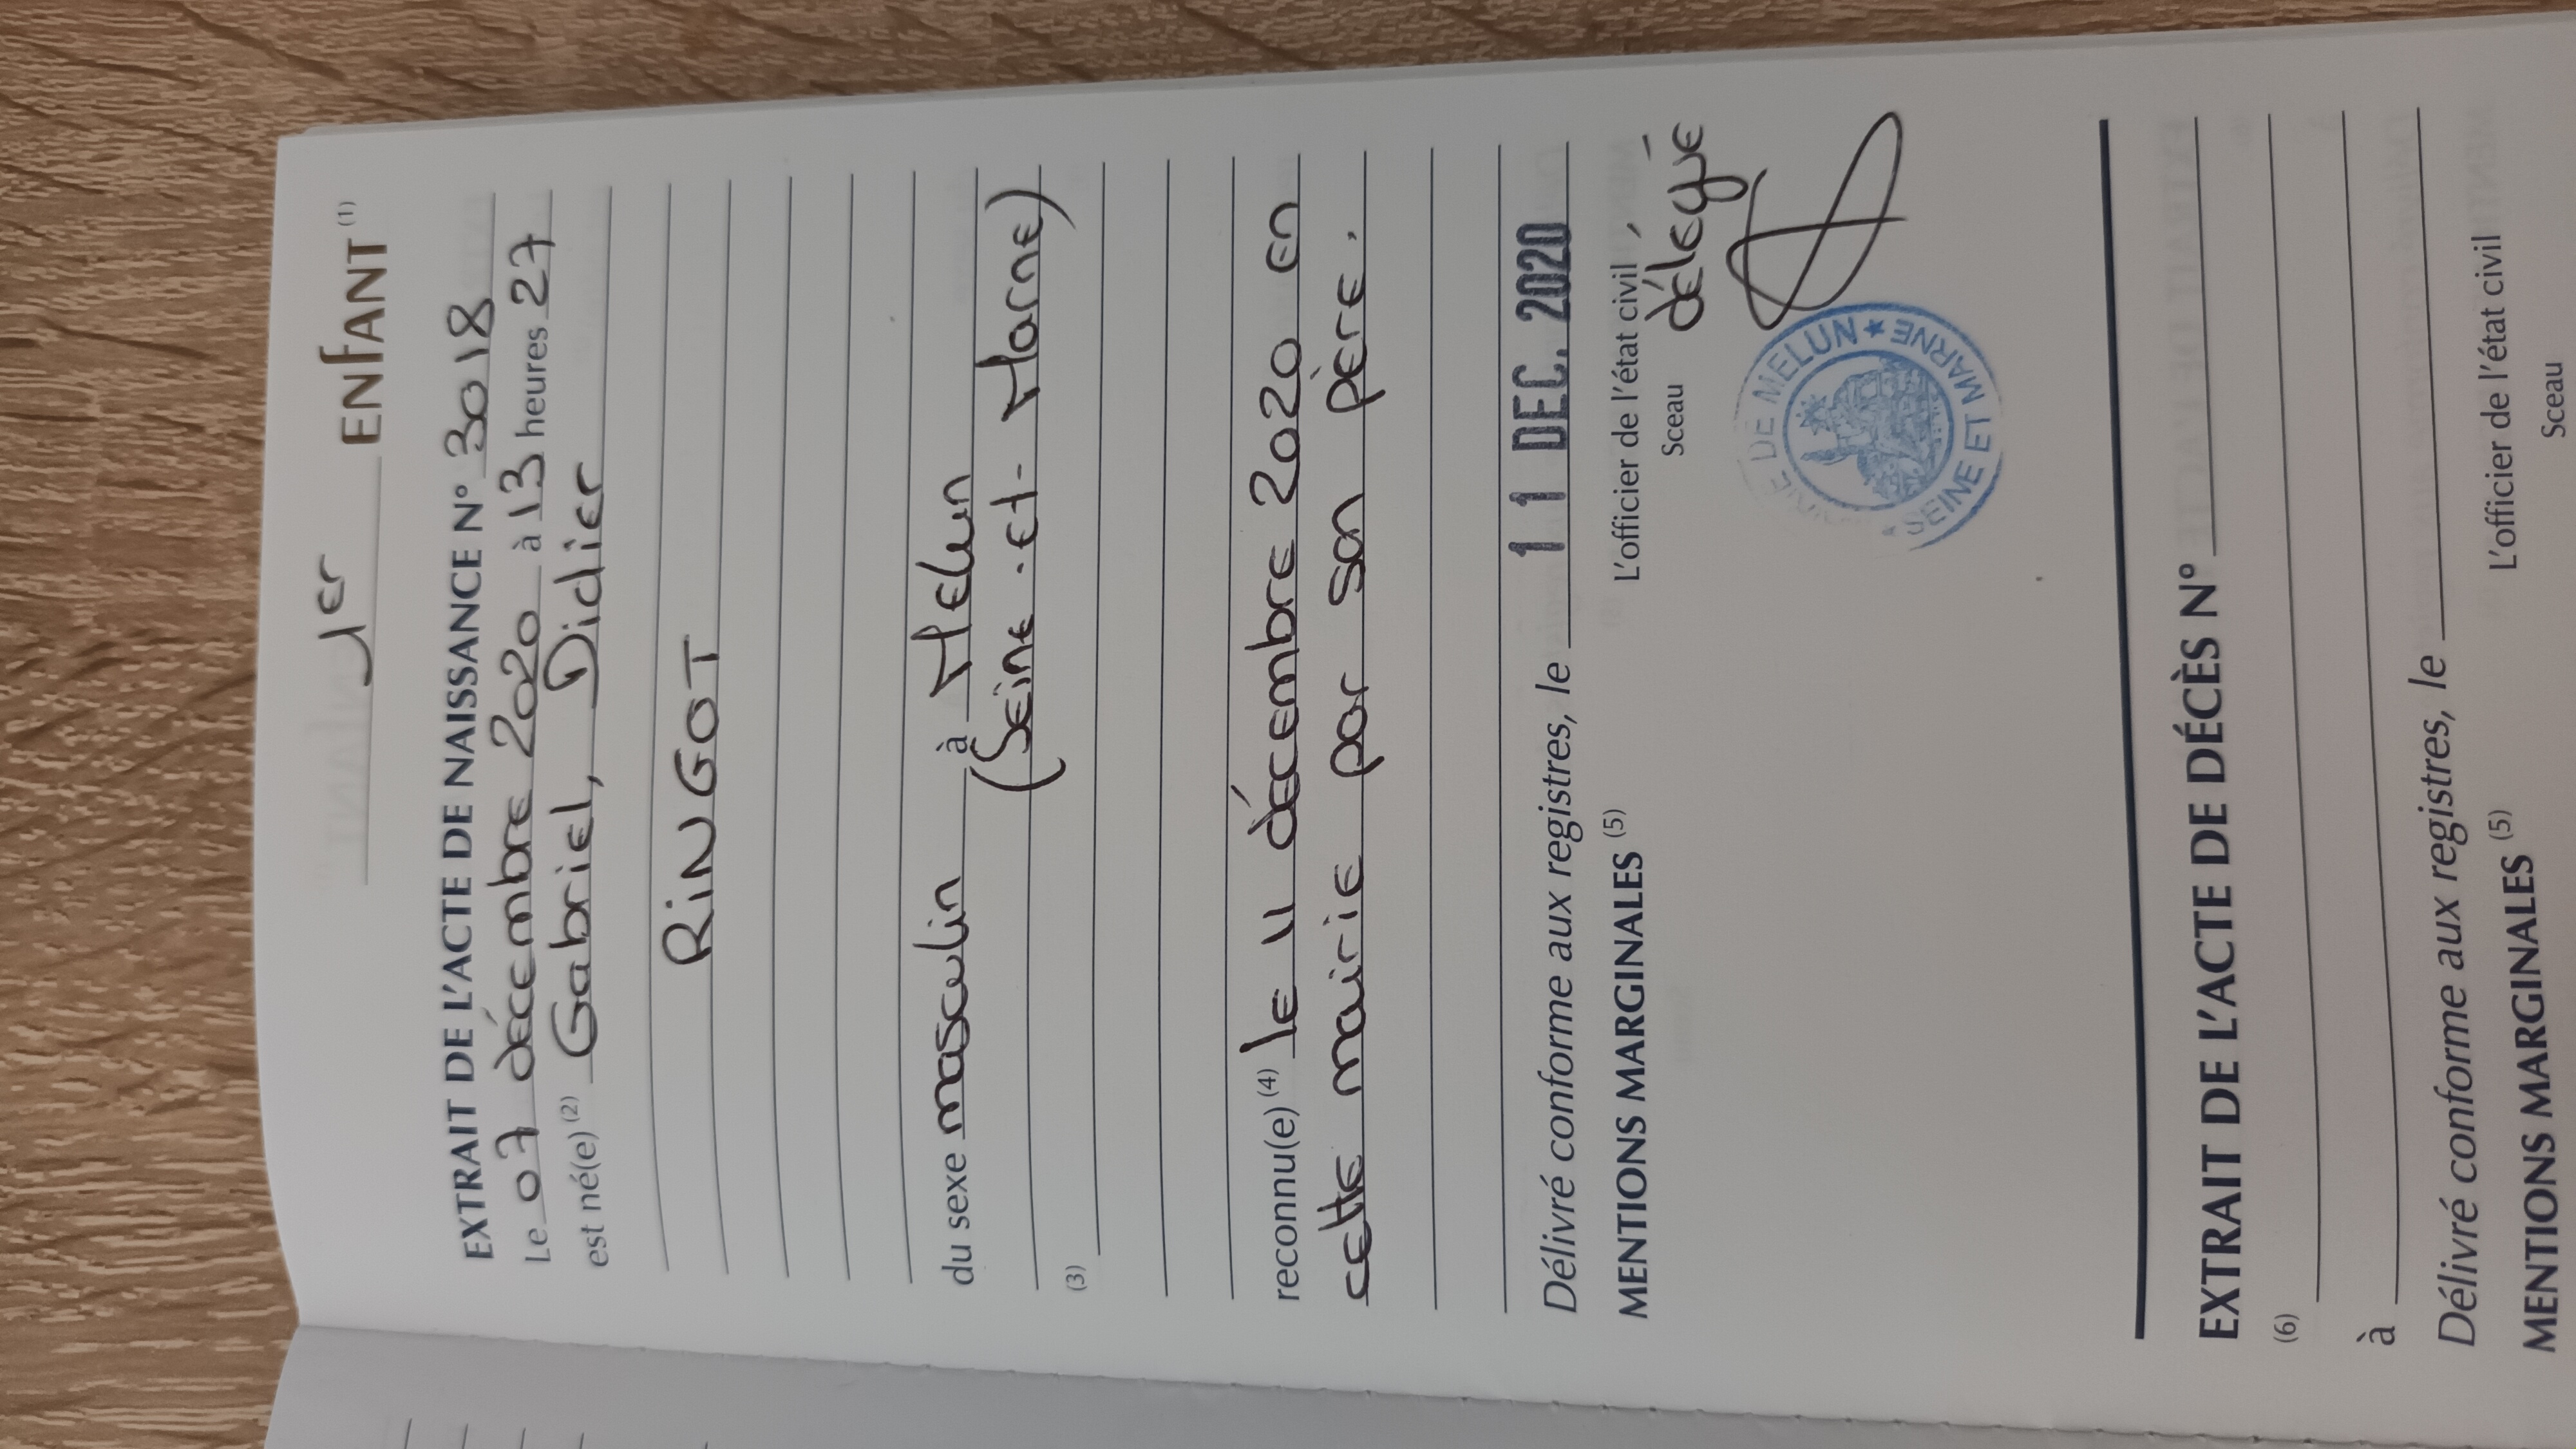 1er ENFANT (1)
EXTRAIT DE L'ACTE DE NAISSANCE N° 3018
Le 07 décembre 2020 à 13 heures 27
est né(e) (2) Gabriel, Didier
RINGOT
du sexe masculin à Melun
(Seine-et-Marne)
(3)
reconnu(e) (4) le 11 décembre 2020 en
cette mairie par son père.
Délivré conforme aux registres, le 11 DEC. 2020
MENTIONS MARGINALES (5) L'officier de l'état civil,
Sceau délégué
MAIRIE DE MELUN ★ SEINE ET MARNE ★
EXTRAIT DE L'ACTE DE DÉCÈS N°
(6)
à
Délivré conforme aux registres, le
MENTIONS MARGINALES (5) L'officier de l'état civil
Sceau